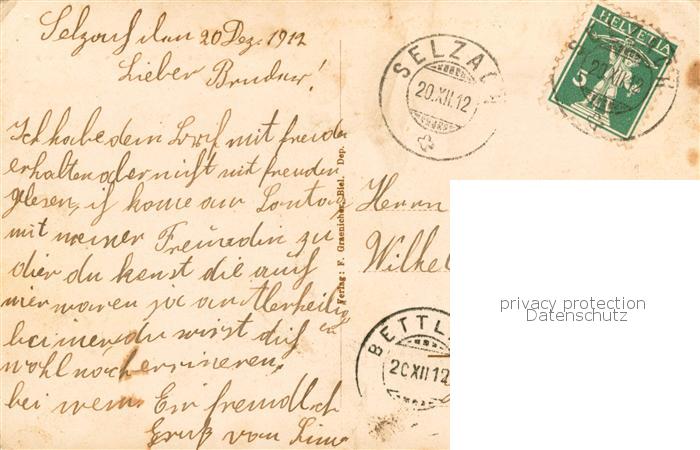 Selzach den 20 Dez. 1912
Lieber Bruder!
Ich habe dein Brief mit freuden
erhalten aber nicht mit freuden
gelesen, ich kome am Sontag
mit meiner Freundin zu
dier du kenst die auf
mier waren ja an Allerheilig
bei mer du wirst dich
wohl noch errineren,
bei wem. Ein freundlich
Gruß vom
Verlag: F. Graenicher, Biel. Dep.
SELZACH
20.XII.12
HELVETIA
5
20.XII.12
Herrn
Wilhe
BETTL
20.XII.12
privacy protection
Datenschutz